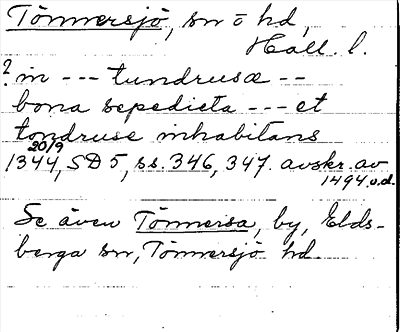 Tönnersjö, sn o hd,
Hall. l.
? in --- tundrusæ --
bona sepedicta --- et
tondruse inhabitans
20/9
1344, SD 5, ss. 346, 347. avskr. av
1494 o.d.
Se även Tönnersa, by, Elds-
berga sn, Tönnersjö hd.